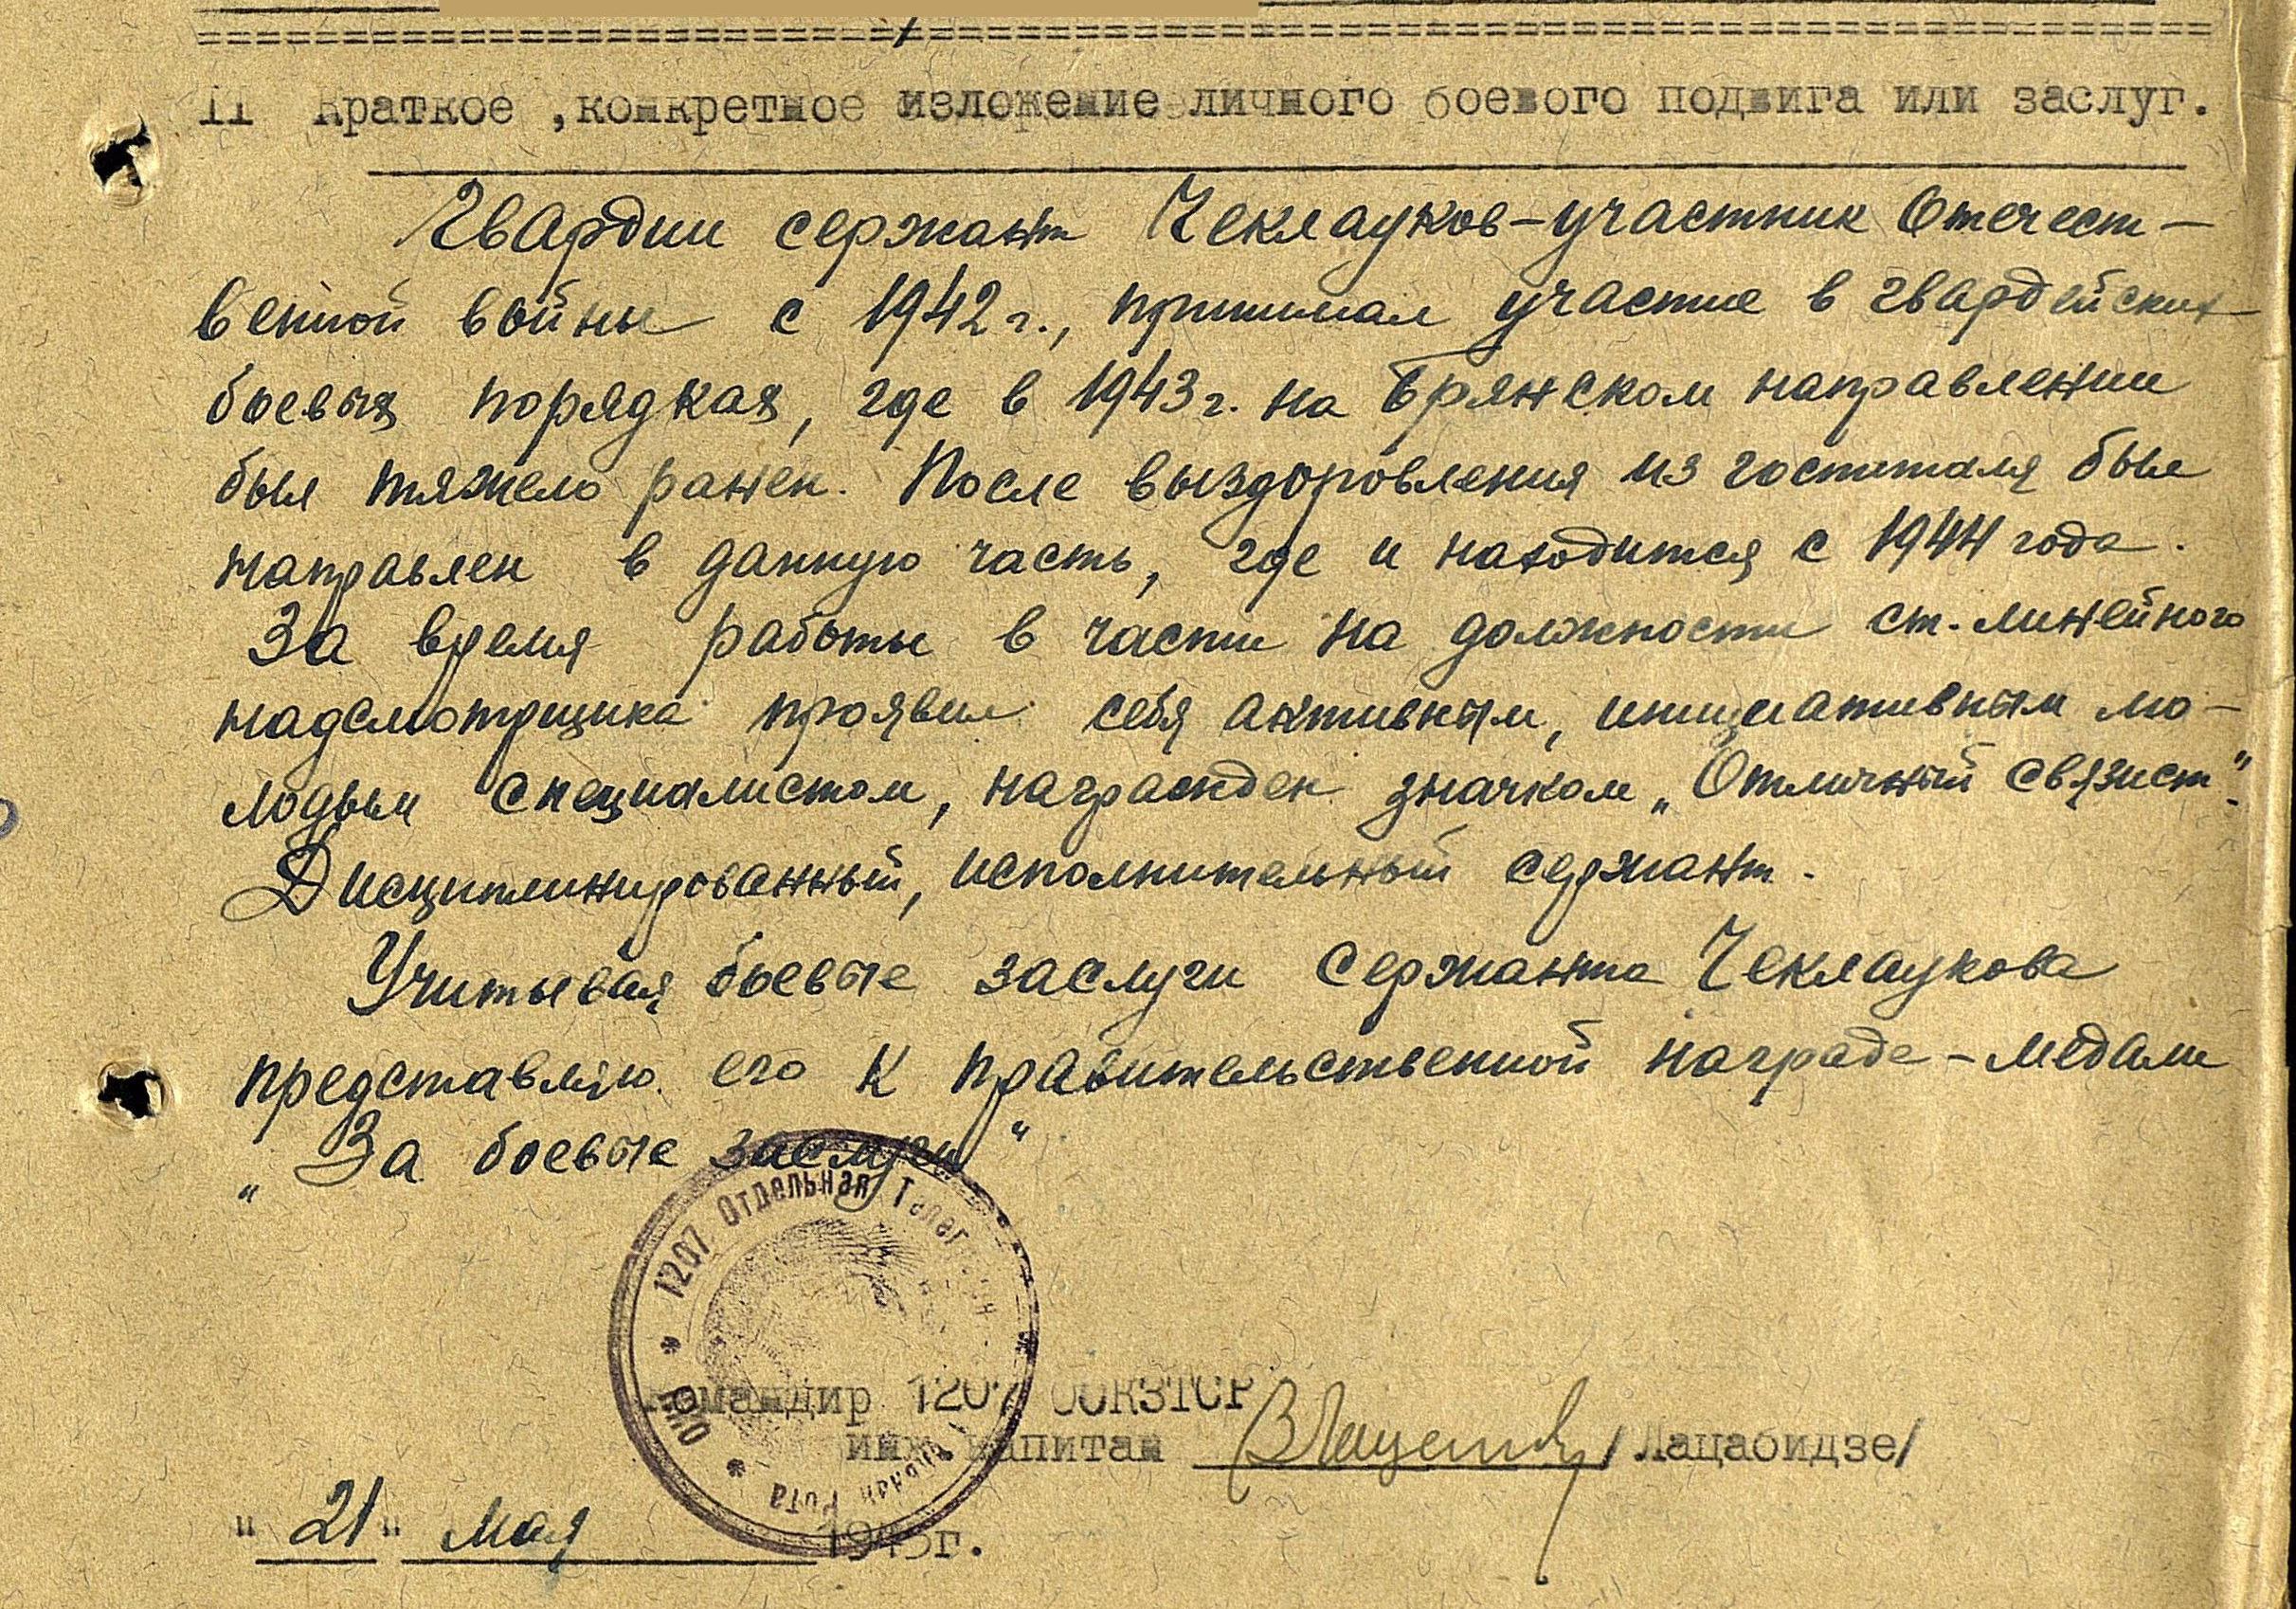 II Краткое ,конкретное изложение личного боевого подвига или заслуг.
Гвардии сержант Чеклауков-участник Отечест-
венной войны с 1942 г., принимал участие в гвардейских
боевых порядках, где в 1943 г. на Брянском направлении
был тяжело ранен. После выздоровления из госпиталя был
направлен в данную часть, где и находится с 1944 года.
За время работы в части на должности ст. линейного
надсмотрщика проявил себя активным, инициативным мо-
лодым специалистом, награжден значком „Отличный связист".
Дисциплинированный, исполнительный сержант.
Учитывая боевые заслуги сержанта Чеклаукова
представляю его к правительственной награде - медали
„За боевые заслуги"
1207 Отдельная
Рота
Командир 1207
инж капитан /Лацабидзе/
"21" мая 1945г.